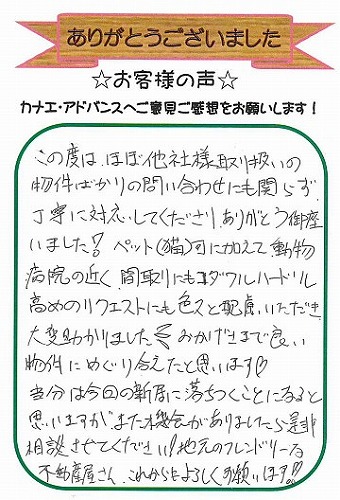 ありがとうございました
☆お客様の声☆
カナエ・アドバンスへご意見ご感想をお願いします！
この度は、ほぼ他社様取り扱いの
物件ばかりの問い合わせにも関らず
丁寧に対応してくださり、ありがとう御座
いました！ペット（猫）可に加えて動物
病院の近く、間取りにもコダワル、ハードル
高めのリクエストにも色々と配慮いただき、
大変助かりました おかげさまで良い
物件にめぐり合えたと思います♡
当分は今回の新居に落ちつくことになると
思いますが また機会がありましたら是非
相談させてください！地元のフレンドリーな
不動産屋さん、これからもよろしくお願いします!!